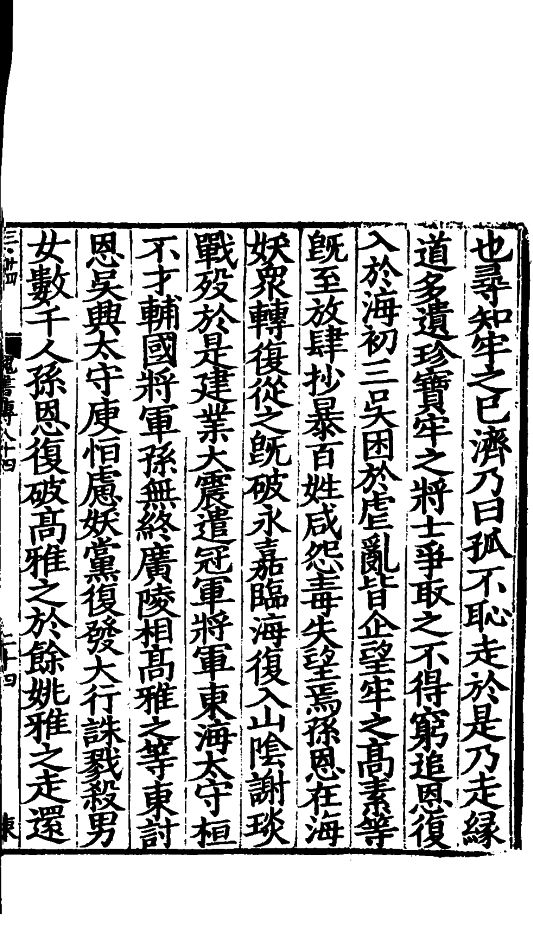 也尋知牢之已濟乃曰孤不恥走於是乃走緣
道多遺珍寶牢之將士爭取之不得窮追恩復
入於海初三吳困於虐亂皆企望牢之高素等
旣至放肆抄暴百姓咸怨毒失望焉孫恩在海
妖衆轉復從之旣破永嘉臨海復入山陰謝琰
戰歿於是建業大震遣冠軍將軍東海太守桓
不才輔國將軍孫無終廣陵相高雅之等東討
恩吳興太守庾恒慮妖黨復發大行誅戮殺男
女數千人孫恩復破高雅之於餘姚雅之走還
魏書傳八十四